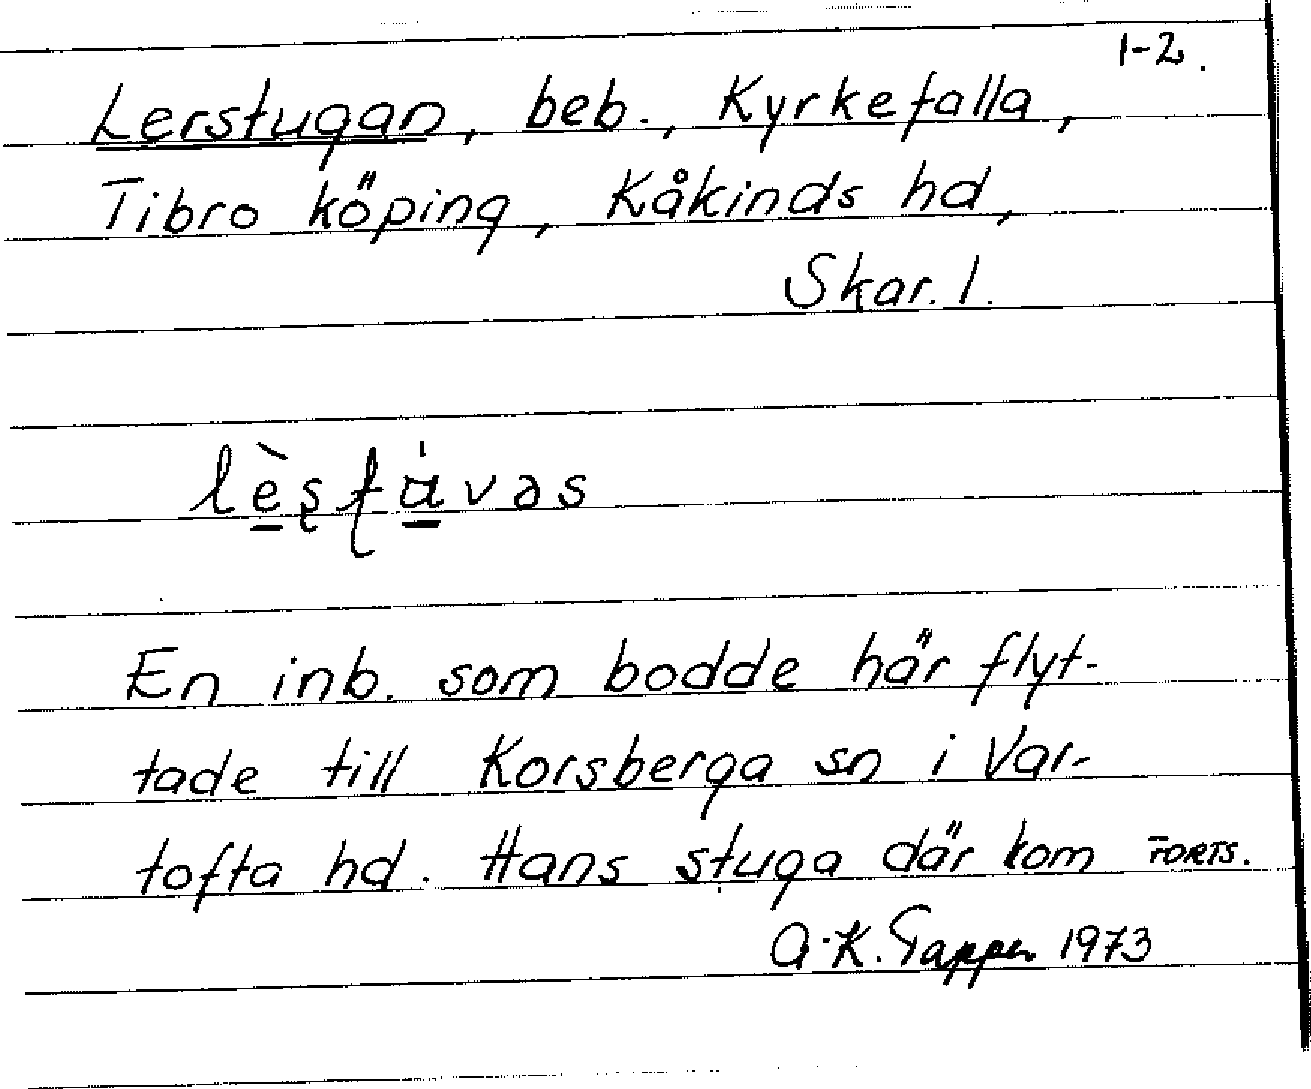 1-2.
Lerstugan, beb., Kyrkefalla,
Tibro köping, Kåkinds hd,
Skar. l.
En inb. som bodde här flyt-
tade till Korsberga sn i Var-
tofta hd. Hans stuga där kom FORTS.
A.K. Tapper 1973